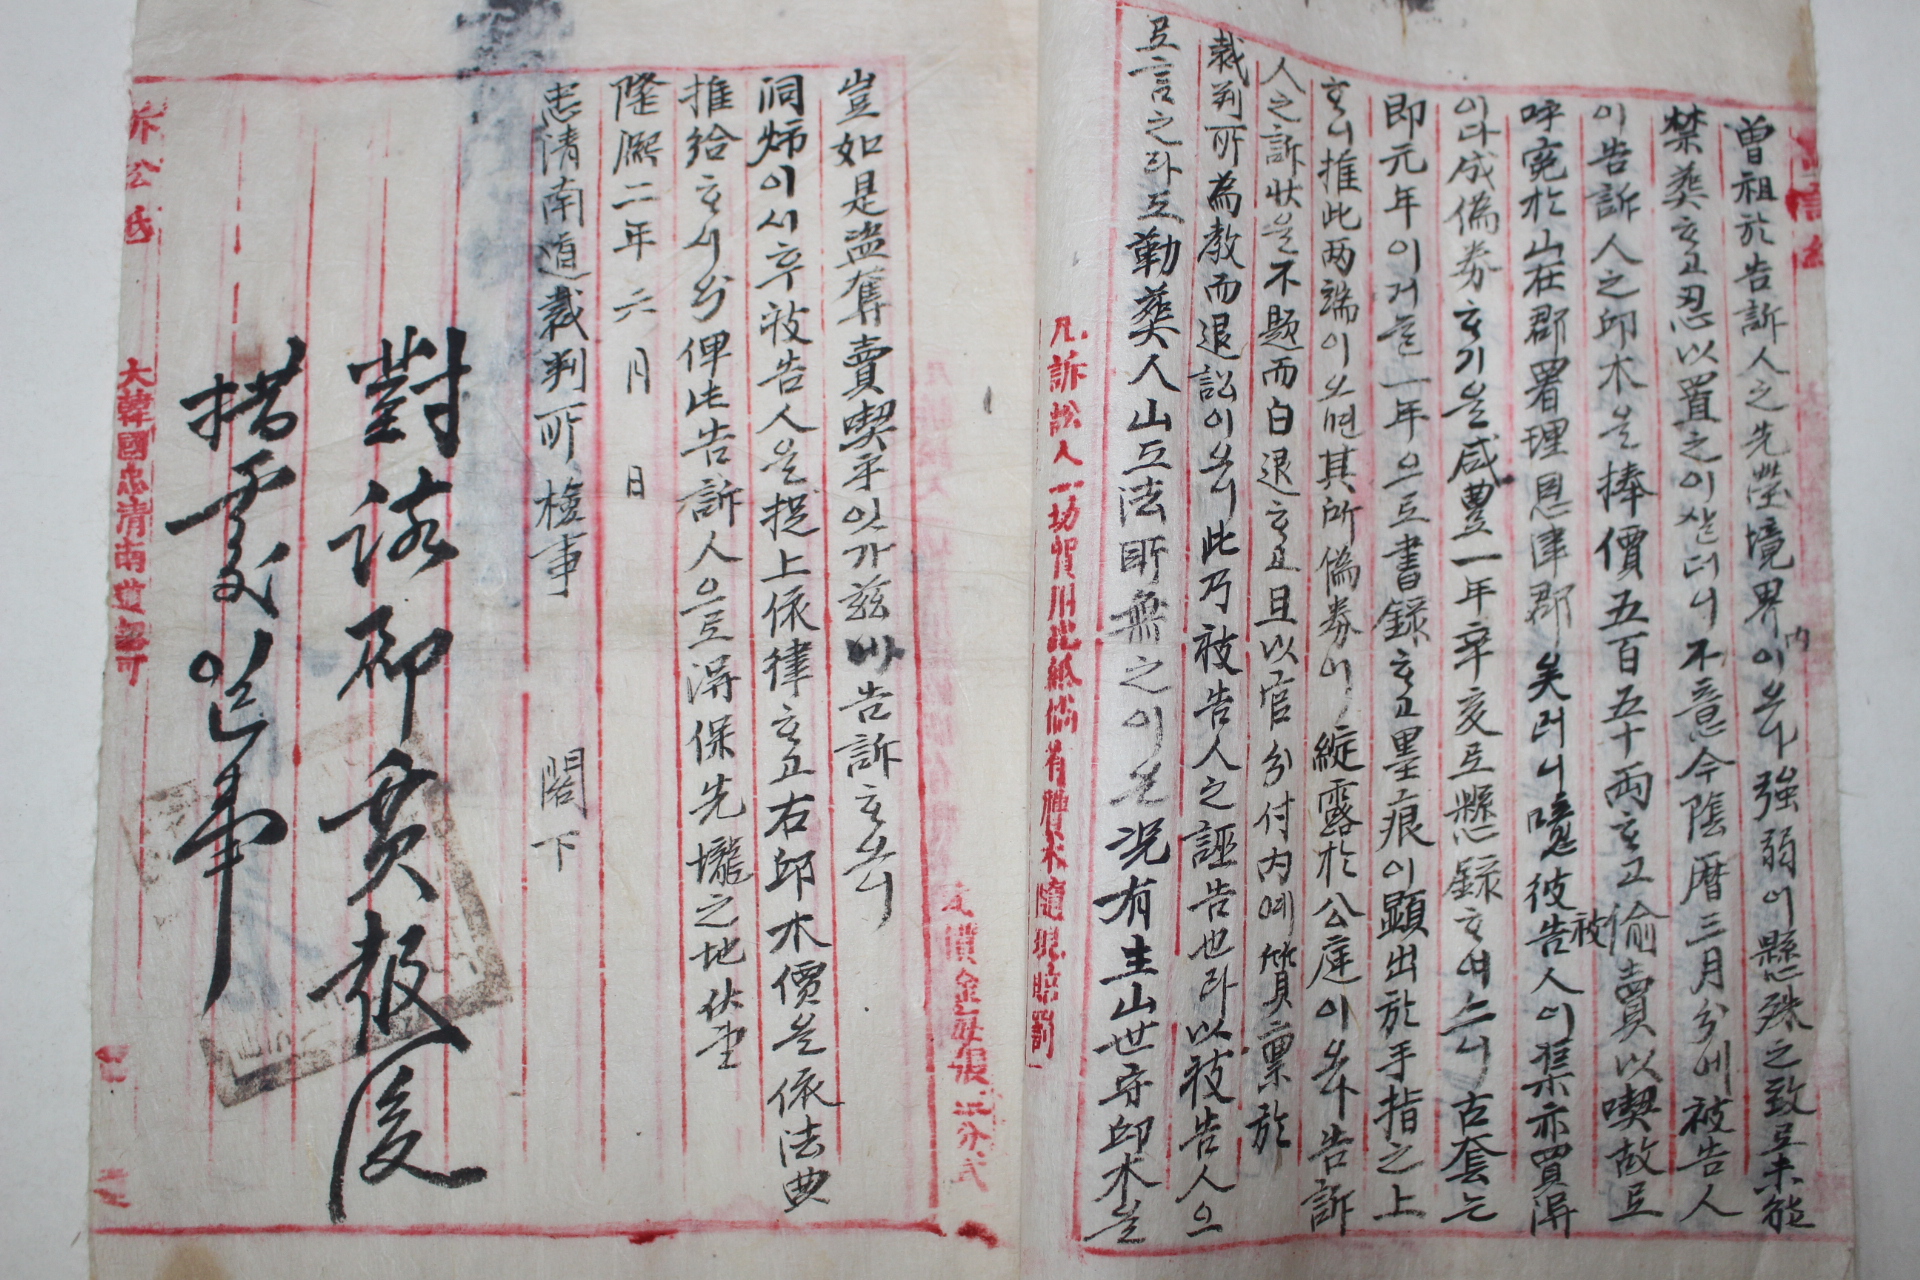 曾祖於告訴人之先塋境界內이온바强弱이懸殊之致로未能
禁葬ᄒᆞ고忍以置之이삽더니不意今陰曆三月分에被告人
이告訴人之邱木을捧價五百五十兩ᄒᆞ고偸賣以喫故로
呼寃於山在郡署理恩津郡矣러니噫彼被告人이渠亦買得
이다成僞券ᄒᆞ기을咸豊一年辛亥로懸錄ᄒᆞ여스니古套는
即元年이거늘一年으로書錄ᄒᆞ고墨痕이顯出於手指之上
ᄒᆞ니推此兩端이오면其所僞券이綻露於公庭이온바告訴
人之訴狀을不題而白退ᄒᆞ고且以官分付內예質稟於
裁判所爲敎而退訟이온니此乃被告人之誣告也라以被告人으
로言之라도勒葬人山도法所無之이온况有主山世守邱木을
豈如是盜奪賣喫乎잇가玆以告訴ᄒᆞ온니
洞燭이시후被告人을捉上依律ᄒᆞ고右邱木價을依法典
推給ᄒᆞ시와俾此告訴人으로得保先壠之地伏望
隆熙二年六月 日
忠清南道裁判所檢事 閣下
對該郡質報後
措處필事
凡訴訟人一切買用此紙倘有贋本隨現賠罰
定價金每張二分式
訴公紙
大韓國忠清南道認可